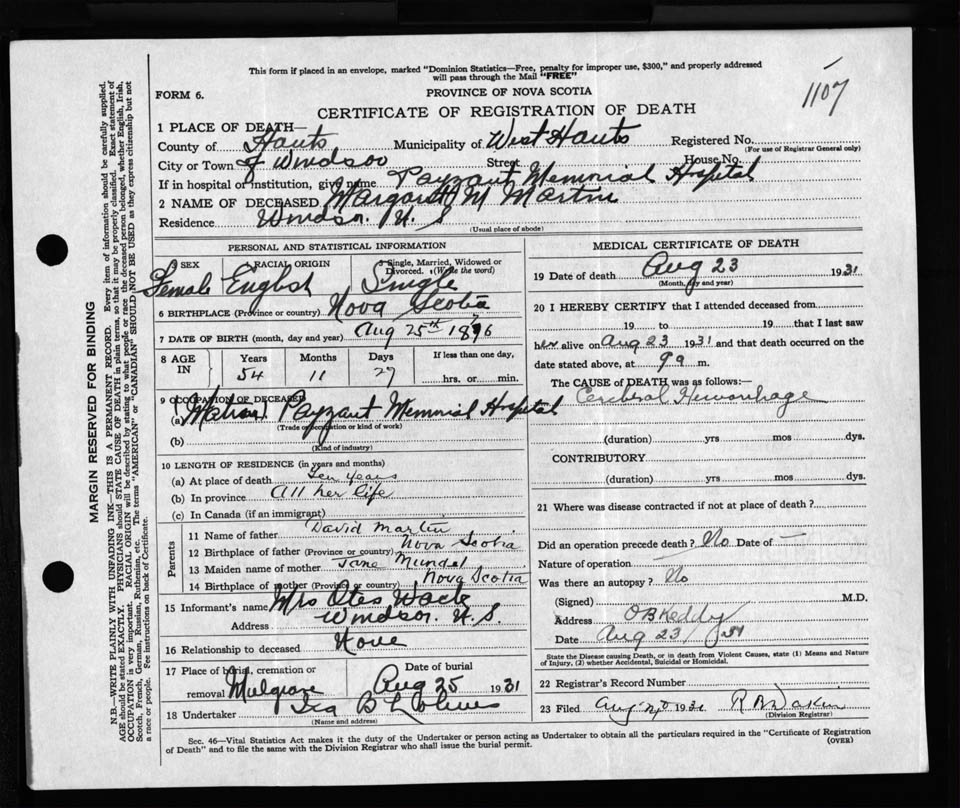 This form if placed in an envelope, marked "Dominion Statistics—Free, penalty for improper use, $300," and properly addressed
will pass through the Mail "FREE"
1107
FORM 6.
PROVINCE OF NOVA SCOTIA
CERTIFICATE OF REGISTRATION OF DEATH
1 PLACE OF DEATH—
County of Hants Municipality of West Hants Registered No.
(For use of Registrar General only)
City or Town of Windsor Street House No.
If in hospital or institution, give name Payzant Memorial Hospital
2 NAME OF DECEASED Margaret M Martin
Residence Windsor. N. S
(Usual place of abode)
PERSONAL AND STATISTICAL INFORMATION
SEX RACIAL ORIGIN Single, Married, Widowed or
Divorced. (Write the word)
Female English Single
6 BIRTHPLACE (Province or country) Nova Scotia
7 DATE OF BIRTH (month, day and year) Aug 25th 1876
8 AGE IN Years Months Days If less than one day,
54 11 27 hrs. or min.
9 OCCUPATION OF DECEASED
(a) (Matron) Payzant Memorial Hospital
(Trade or occupation or kind of work)
(b)
(Kind of industry)
10 LENGTH OF RESIDENCE (in years and months)
(a) At place of death Ten years
(b) In province All her life
(c) In Canada (if an immigrant)
Parents
11 Name of father David Martin
12 Birthplace of father (Province or country) Nova Scotia
13 Maiden name of mother Jane
14 Birthplace of mother (Province or country) Nova Scotia
15 Informant's name Mrs Otes
Address Windsor. N. S.
16 Relationship to deceased None
17 Place of burial, cremation or Date of burial
removal Mulgrave Aug 25 1931
18 Undertaker
(Name and address)
MEDICAL CERTIFICATE OF DEATH
19 Date of death Aug 23 1931
(Month, day and year)
20 I HEREBY CERTIFY that I attended deceased from
19 to 19 that I last saw
her alive on Aug 23 1931 and that death occurred on the
date stated above, at 9 a m.
The CAUSE OF DEATH was as follows:—
Cerebral Hemorrhage
(duration) yrs mos dys.
CONTRIBUTORY
(duration) yrs mos dys.
21 Where was disease contracted if not at place of death?
Did an operation precede death? No Date of —
Nature of operation —
Was there an autopsy? No
(Signed) M.D.
Address O B Keddy
Date Aug 23/31
State the Disease causing Death, or in death from Violent Causes, state (1) Means and Nature
of Injury, (2) whether Accidental, Suicidal or Homicidal.
22 Registrar's Record Number
23 Filed Aug 1931
(Division Registrar)
Sec. 46—Vital Statistics Act makes it the duty of the Undertaker or person acting as Undertaker to obtain all the particulars required in the "Certificate of Registration
of Death" and to file the same with the Division Registrar who shall issue the burial permit.
(OVER)
MARGIN RESERVED FOR BINDING
N.B.—WRITE PLAINLY WITH UNFADING INK—THIS IS A PERMANENT RECORD. Every item of information should be carefully supplied.
AGE should be stated EXACTLY. PHYSICIANS should STATE CAUSE OF DEATH in plain terms, so that it may be properly classified. Exact statement of
OCCUPATION is very important. RACIAL ORIGIN will be described by stating to what people or race the deceased person belonged, whether English, Irish,
Scotch, French, German, Russian, Ruthenian, etc. The terms "AMERICAN" or "CANADIAN" SHOULD NOT BE USED as they express citizenship but not
a race or people. See instructions on back of Certificate.